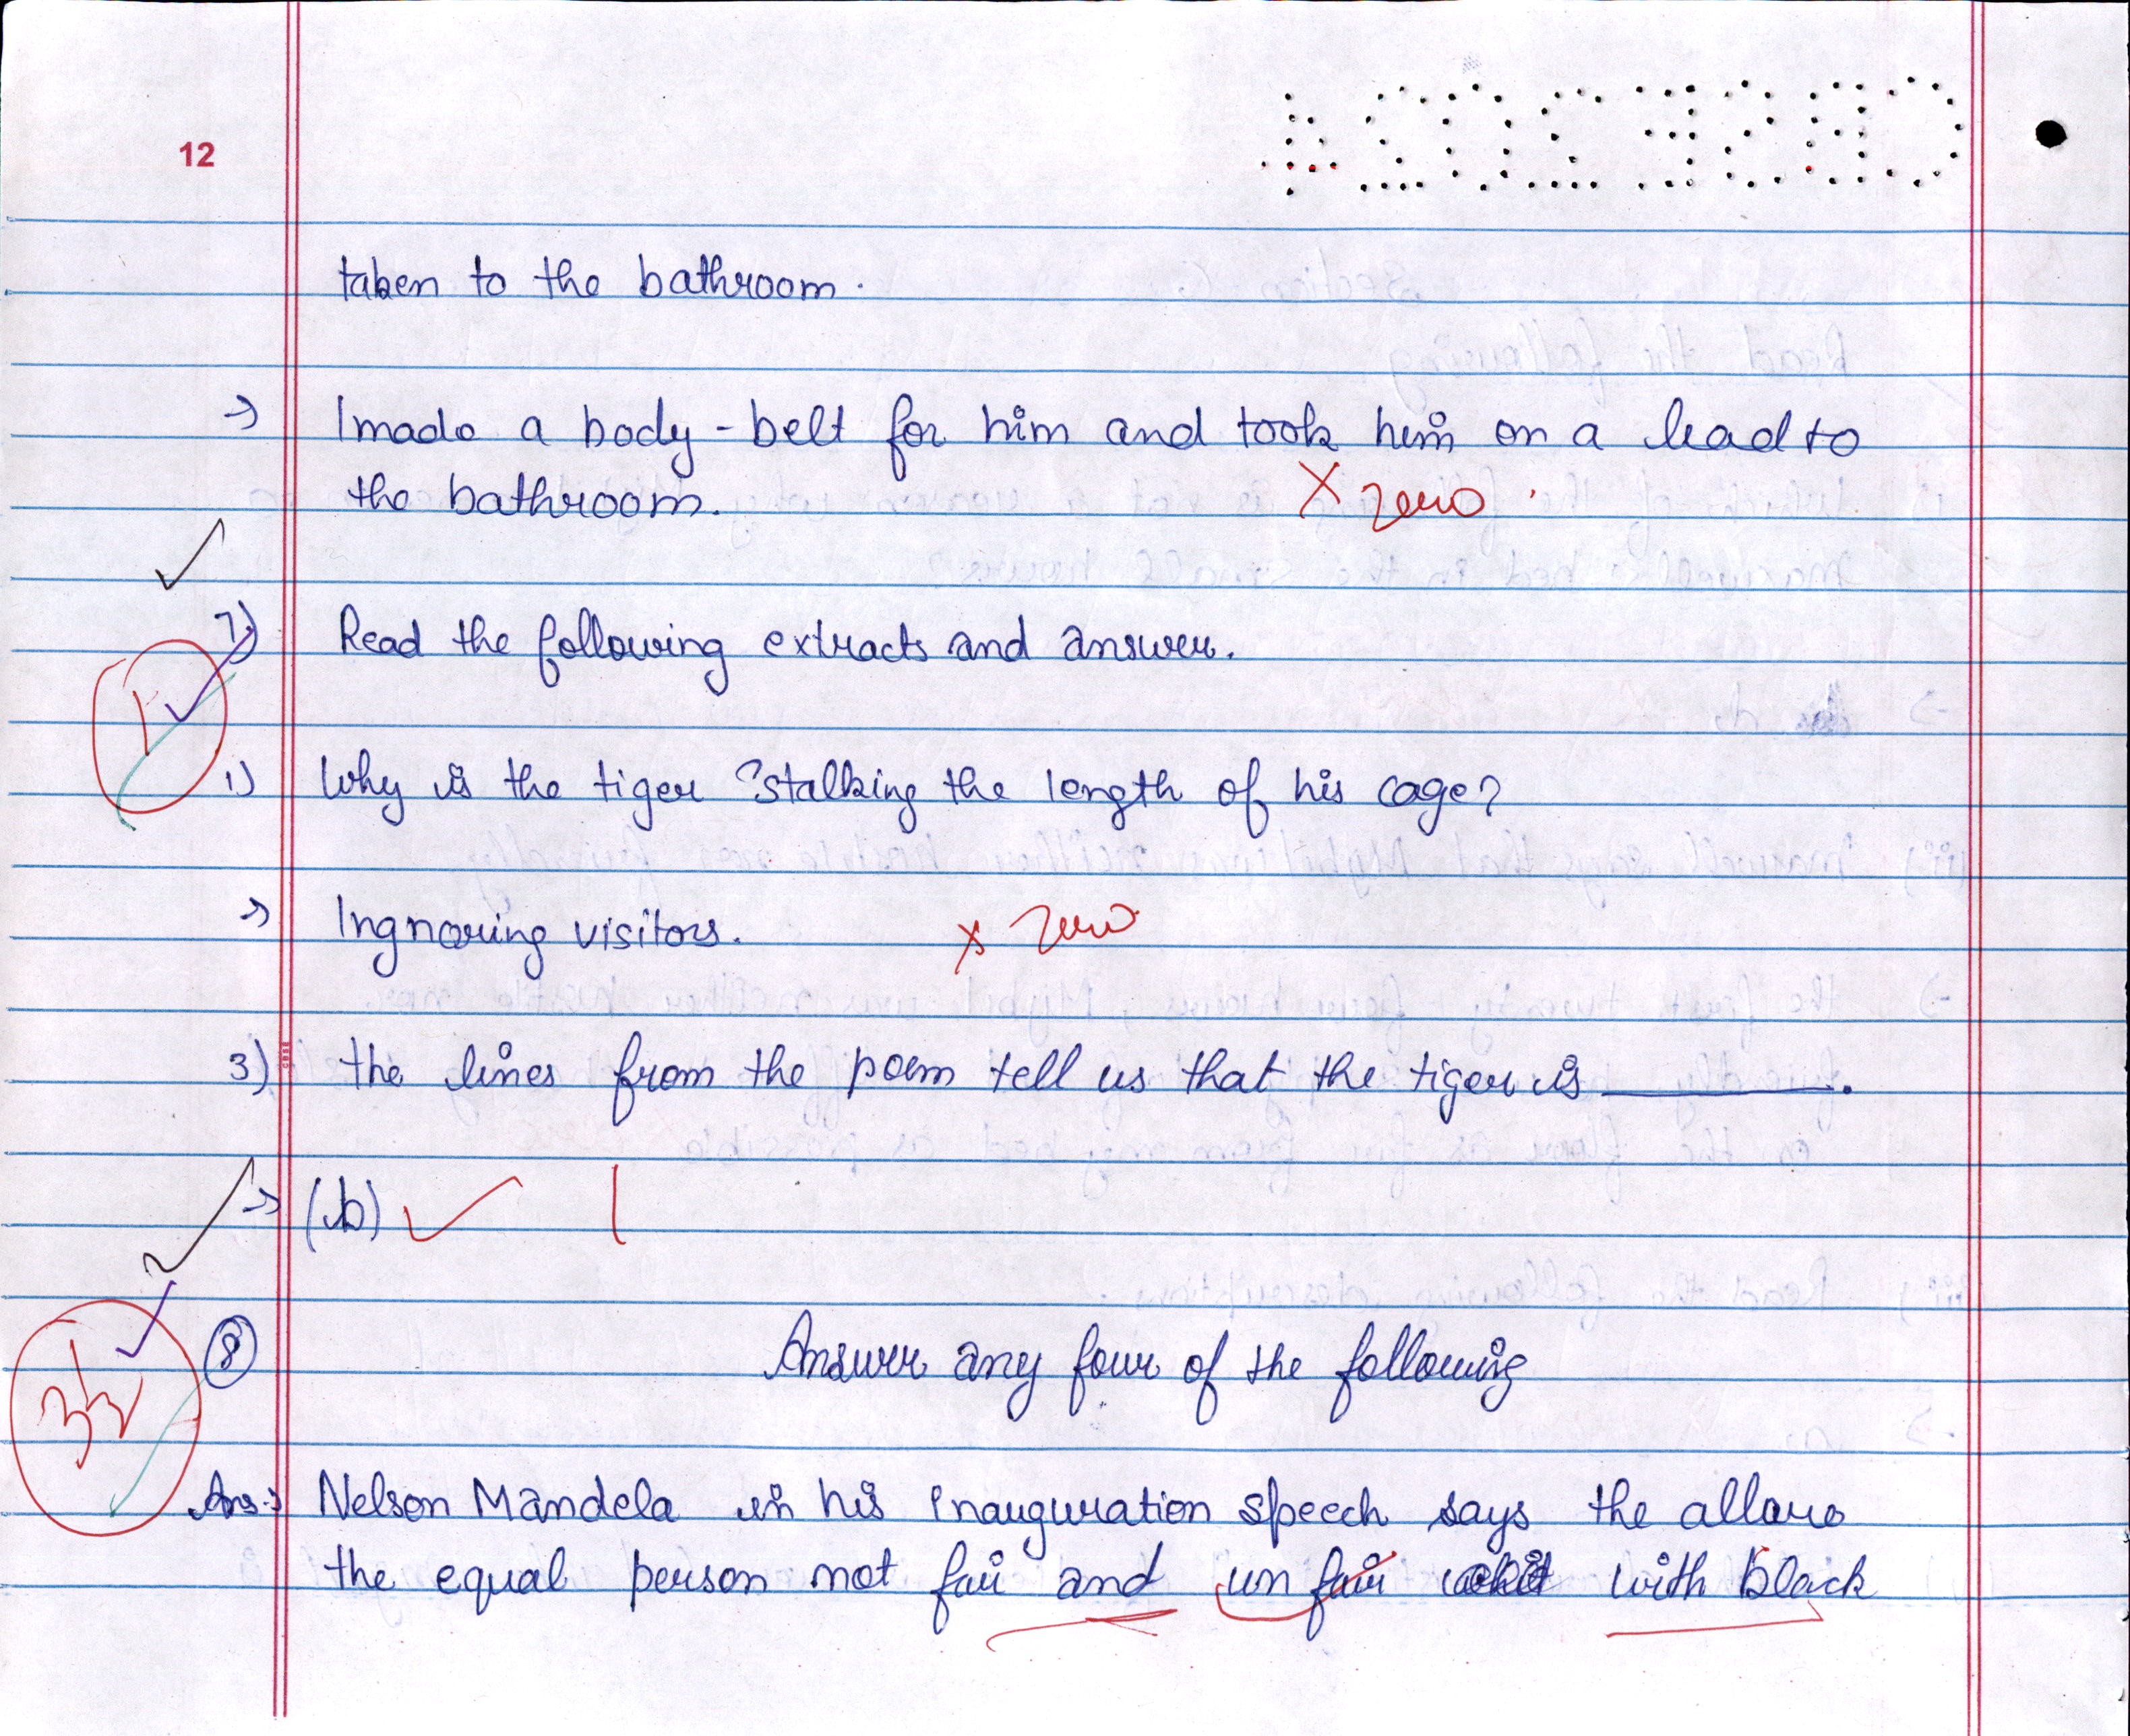 CBSE 2024
12
taken to the bathroom.
→ I made a body-belt for him and took him on a lead to
the bathroom.
X zero
7) Read the following extracts and answer.
1
1) Why is the tiger stalking the length of his cage?
→ Ingnoring visitors.
x zero
3) the lines from the poem tell us that the tiger is ______.
→ (b) 1
8 Answer any four of the following
3½
Ans→ Nelson Mandela in his inauguration speech says the
the equal person not fair and un fair with black